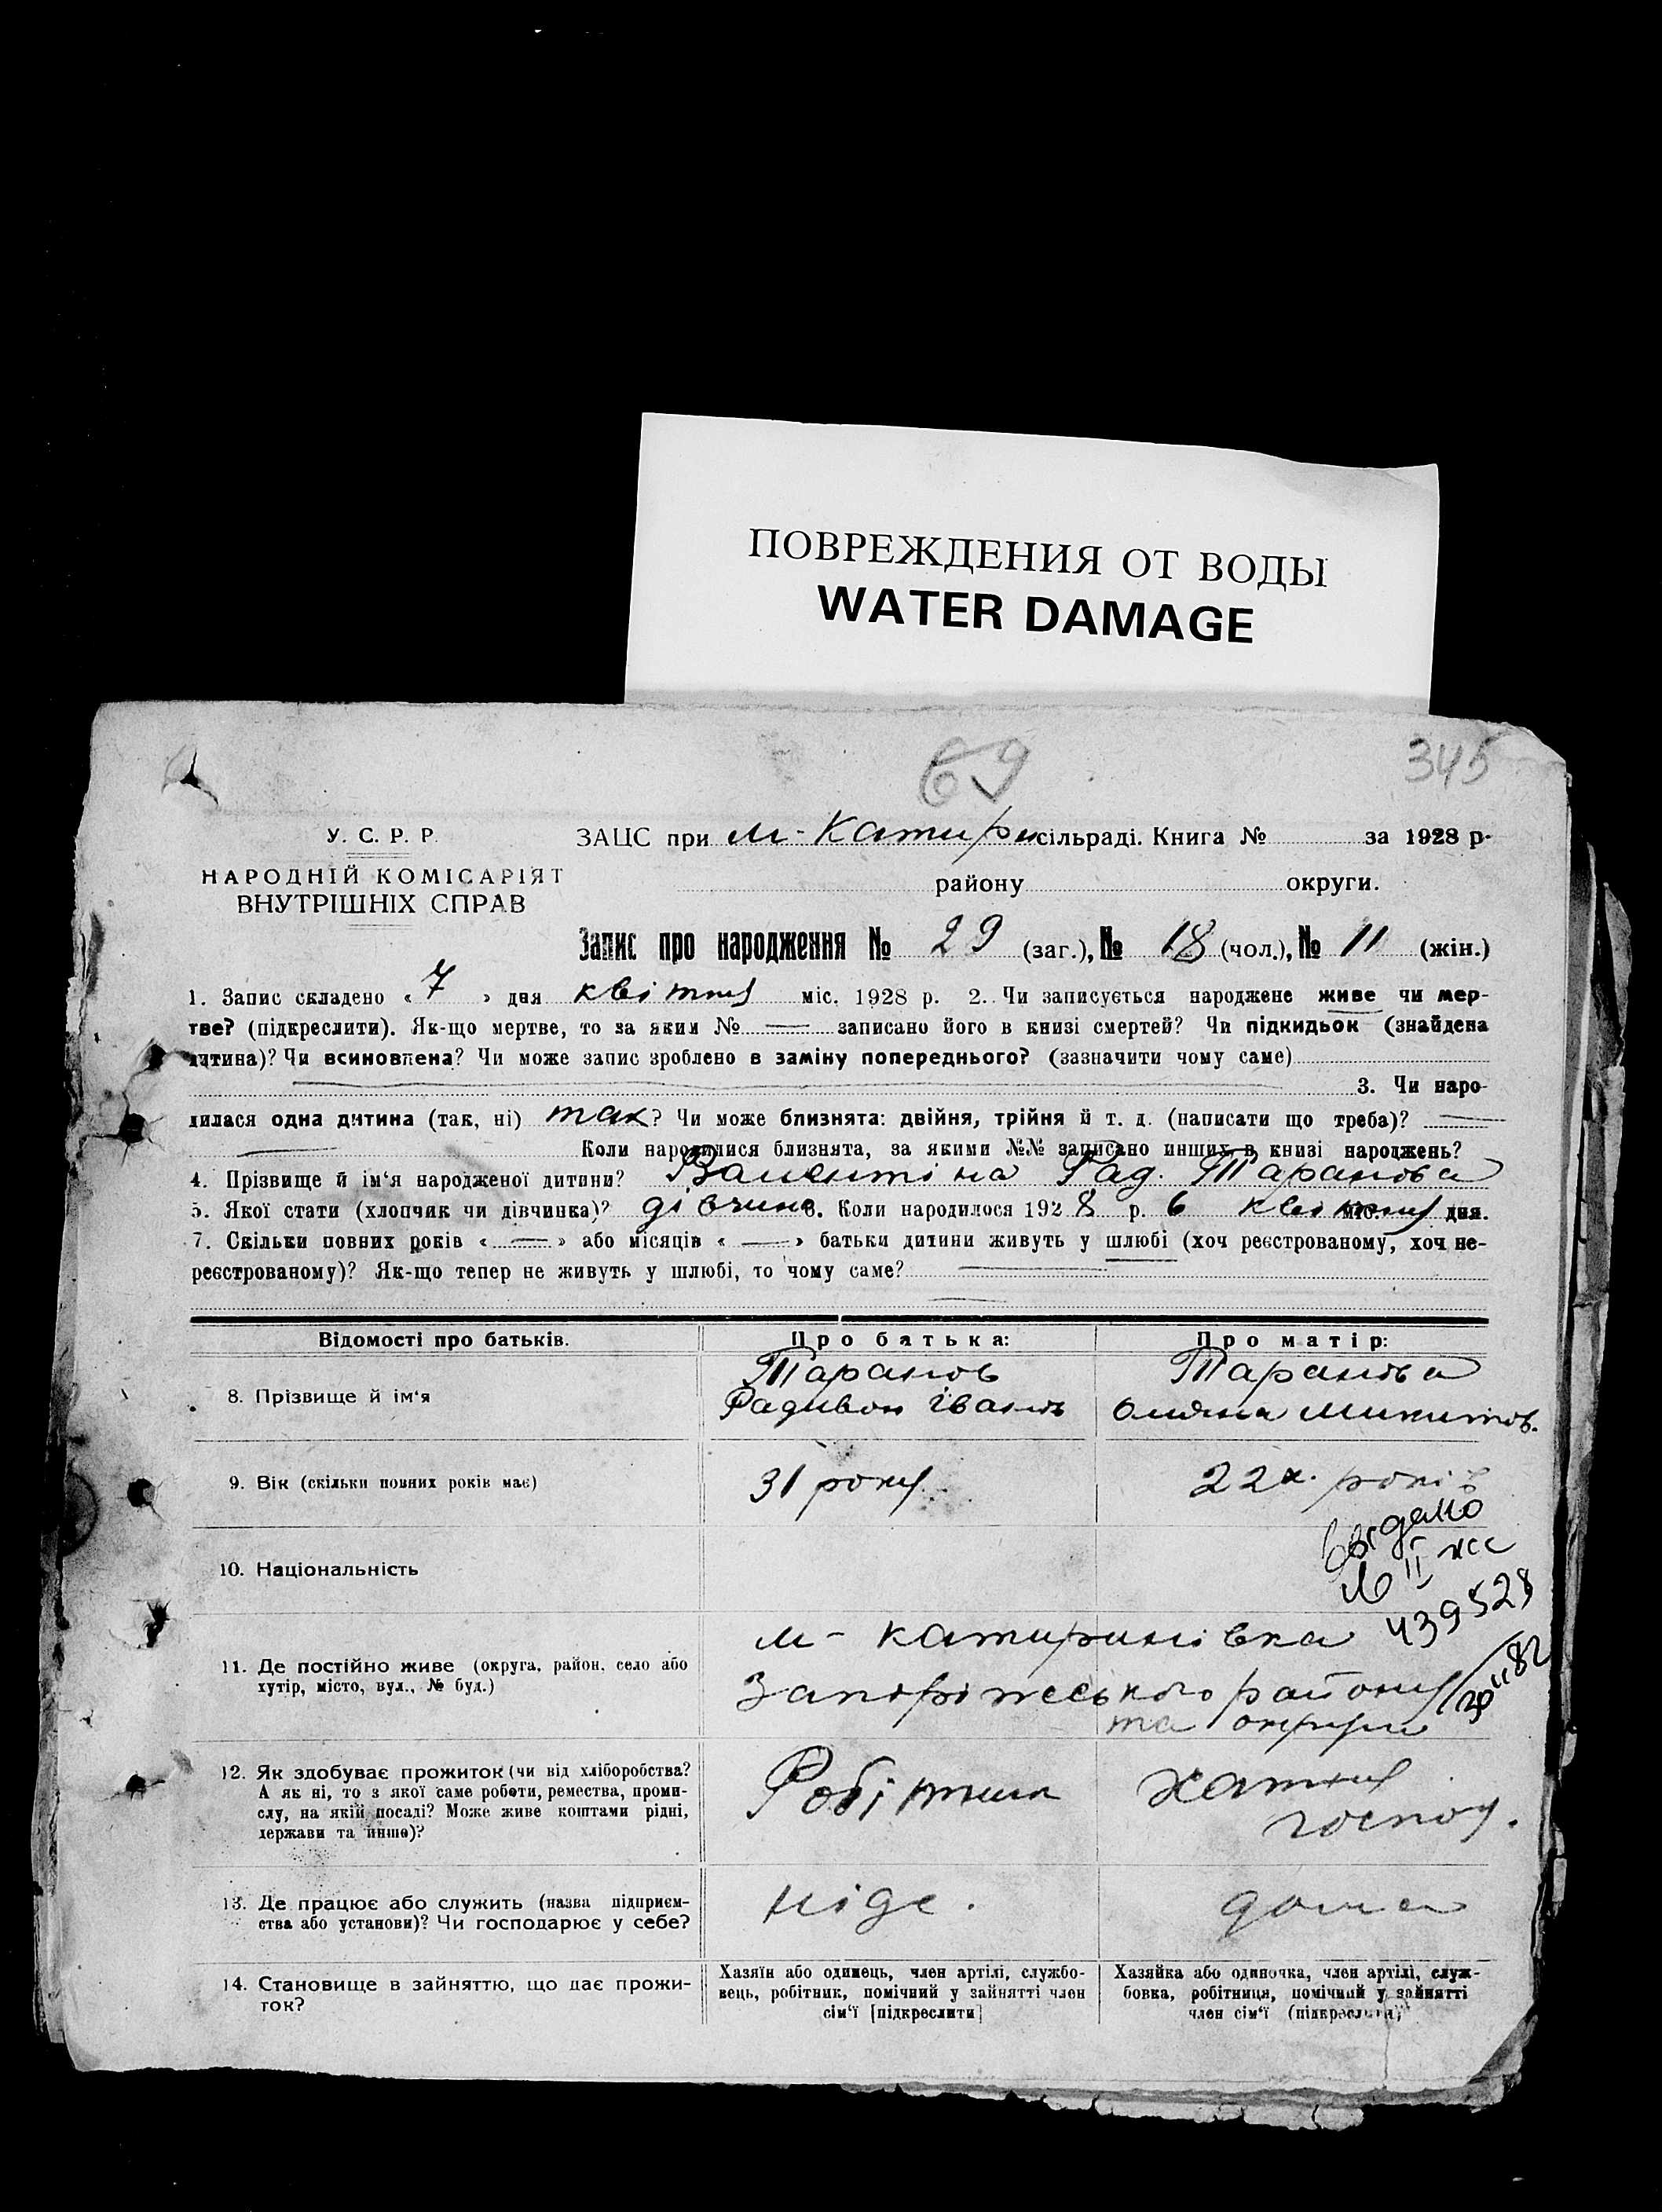 ПОВРЕЖДЕНИЯ ОТ ВОДЫ
WATER DAMAGE
69
345
У. С. Р. Р.
НАРОДНІЙ КОМІСАРІЯТ
ВНУТРІШНІХ СПРАВ
ЗАЦС при м-Катири сільраді. Книга № за 1928 р.
району округи.
Запис про народження № 29 (заг.), № 18 (чол.), № 11 (жін.)
1. Запис складено « 7 » дня квітня міс. 1928 р. 2. Чи записується народжене живе чи мер-
тве? (підкреслити). Як-що мертве, то за яким № — записано його в книзі смертей? Чи підкидьок (знайдена
дитина)? Чи всиновлена? Чи може запис зроблено в заміну попереднього? (зазначити чому саме)
3. Чи наро-
дилася одна дитина (так, ні) так? Чи може близнята: двійня, трійня й т. д. (написати що треба)? —
Коли народилися близнята, за якими №№ записано инших в книзі народжень?
4. Прізвище й ім'я народженої дитини? Валентіна Рад. Таранова
5. Якої стати (хлопчик чи дівчинка)? дівчина 6. Коли народилося 1928 р. 6 квітня міс. дня.
7. Скільки повних років « — » або місяців « — » батьки дитини живуть у шлюбі (хоч реєстрованому, хоч не-
реєстрованому)? Як-що тепер не живуть у шлюбі, то чому саме? —
Відомості про батьків. Про батька: Про матір:
8. Прізвище й ім'я
Таранов
Радивон Іванов
Таранова
Оляна Микитов.
9. Вік (скільки повних років має) 31 року 22х. років
10. Національність
выдано
II жс
439528
30 11 82
11. Де постійно живе (округа, район, село або
хутір, місто, вул., № буд.)
м-катиринівка
Запоріжського району
та округи
12. Як здобуває прожиток (чи від хліборобства?
А як ні, то з якої саме роботи, ремества, проми-
слу, на якій посаді? Може живе коштами рідні,
держави та инше)?
Робітник
хатня
господ.
13. Де працює або служить (назва підприєм-
ства або установи)? Чи господарює у себе?
ніде.
дома
14. Становище в зайняттю, що дає прожи-
ток?
Хазяїн або одинець, член артілі, службо-
вець, робітник, помічний у зайнятті член
сім'ї [підкреслити]
Хазяйка або одиночка, член артілі, служ-
бовка, робітниця, помічний у зайнятті
член сім'ї (підкреслити)